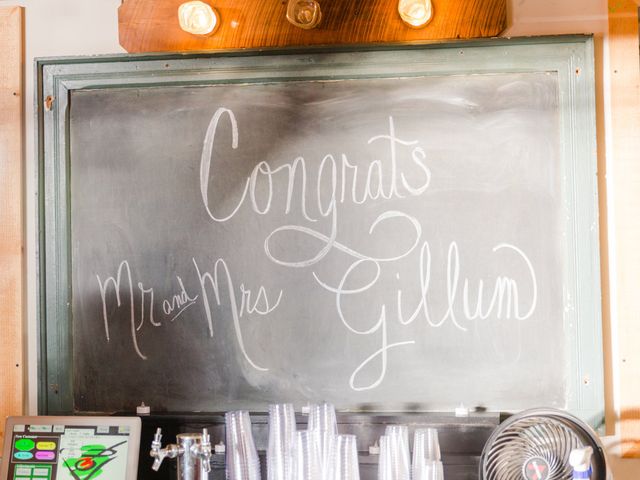 Congrats
Mr and Mrs Gillum